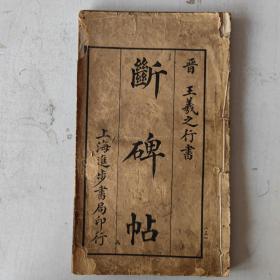 晋 王羲之行書
斷碑帖
上海進步書局印行